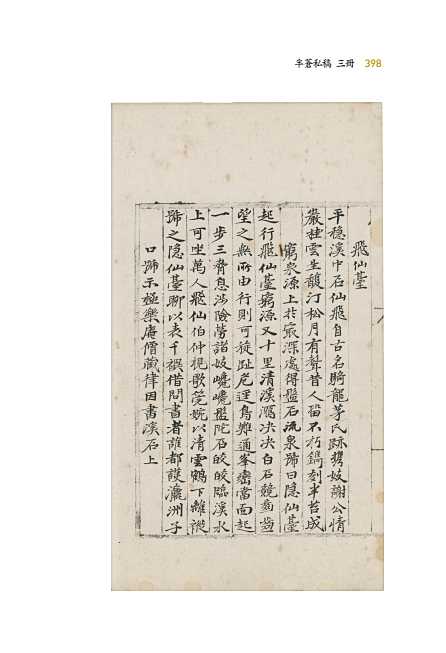 半蒼私稿 三冊 398
飛仙臺
平穏溪中石仙飛自古名騎龍茅氏跡携妓謝公情
巖桂雲生馥汀松月有聲昔人留不朽鐫刻半苔成
窮泉源上於最深處得盤石流泉號曰隱仙臺
起行飛仙臺窮源又十里清溪瀉決決白石競齒齒
望之無所由行則可徒趾危逕鳥難通峯巒當面起
一步三脅息涉險勞詣妓巉巉盤陀石皎皎臨溪水
上可坐萬人飛仙伯仲挹歌筦婉以清雲鶴下離褷
號之隱仙臺聊以表千禩借問書者誰都護瀛洲子
口號示極樂庵僧藏律因書溪石上